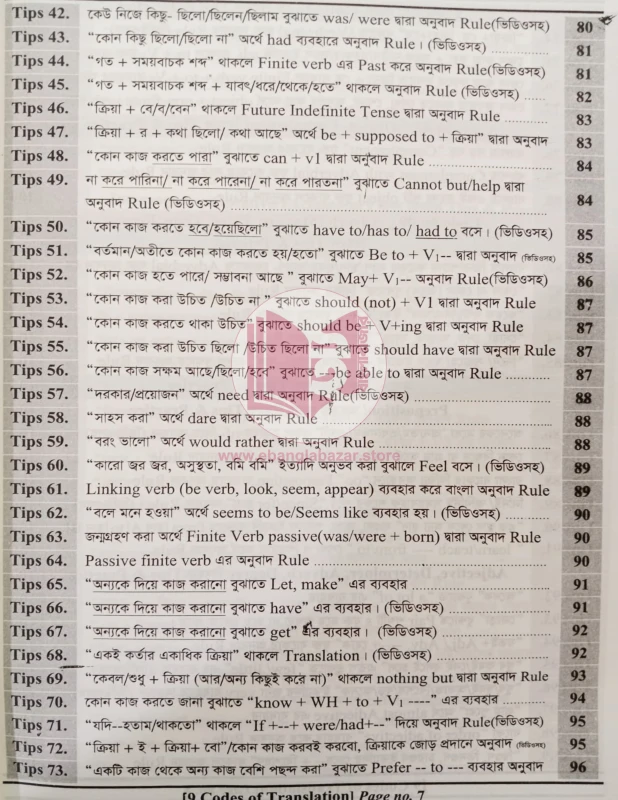 Tips 42. কেউ নিজে কিছু- ছিলো/ছিলেন/ছিলাম বুঝাতে was/ were দ্বারা অনুবাদ Rule(ভিডিওসহ) 80
Tips 43. “কোন কিছু ছিলো/ছিলো না” অর্থে had ব্যবহারে অনুবাদ Rule। (ভিডিওসহ) 81
Tips 44. “গত + সময়বাচক শব্দ” থাকলে Finite verb এর Past করে অনুবাদ Rule(ভিডিওসহ) 81
Tips 45. “গত + সময়বাচক শব্দ + যাবৎ/ধরে/থেকে/হতে” থাকলে অনুবাদ Rule (ভিডিওসহ) ...... 82
Tips 46. “ক্রিয়া + বে/ব/বেন” থাকলে Future Indefinite Tense দ্বারা অনুবাদ Rule 83
Tips 47. “ক্রিয়া + র + কথা ছিলো/ কথা আছে” অর্থে be + supposed to + ক্রিয়া” দ্বারা অনুবাদ 83
Tips 48. “কোন কাজ করতে পারা” বুঝাতে can + v1 দ্বারা অনুবাদ Rule 84
Tips 49. না করে পারিনা/ না করে পারেনা/ না করে পারতনা” বুঝাতে Cannot but/help দ্বারা
অনুবাদ Rule (ভিডিওসহ) 84
Tips 50. “কোন কাজ করতে হবে/হয়েছিলো” বুঝাতে have to/has to/ had to বসে। (ভিডিওসহ) 85
Tips 51. “বর্তমান/অতীতে কোন কাজ করতে হয়/হতো” বুঝাতে Be to + V₁-- দ্বারা অনুবাদ (ভিডিওসহ) 85
Tips 52. “কোন কাজ হতে পারে/ সম্ভাবনা আছে ” বুঝাতে May+ V₁-- অনুবাদ Rule(ভিডিওসহ) 86
Tips 53. “কোন কাজ করা উচিত /উচিত না ” বুঝাতে should (not) + V1 দ্বারা অনুবাদ Rule 87
Tips 54. “কোন কাজ করতে থাকা উচিত” বুঝাতে should be + V+ing দ্বারা অনুবাদ Rule 87
Tips 55. “কোন কাজ করা উচিত ছিলো /উচিত ছিলো না” বুঝাতে should have দ্বারা অনুবাদ Rule 87
Tips 56. “কোন কাজ সক্ষম আছে/ছিলো/হবে” বুঝাতে --be able to দ্বারা অনুবাদ Rule 87
Tips 57. “দরকার/প্রয়োজন” অর্থে need দ্বারা অনুবাদ Rule(ভিডিওসহ) 88
Tips 58. “সাহস করা” অর্থে dare দ্বারা অনুবাদ Rule 88
Tips 59. “বরং ভালো” অর্থে would rather দ্বারা অনুবাদ Rule 88
www.ebanglabazar.store
Tips 60. “কারো জ্বর জ্বর, অসুস্থতা, বমি বমি” ইত্যাদি অনুভব করা বুঝালে Feel বসে। (ভিডিওসহ) 89
Tips 61. Linking verb (be verb, look, seem, appear) ব্যবহার করে বাংলা অনুবাদ Rule 89
Tips 62. “বলে মনে হওয়া” অর্থে seems to be/Seems like ব্যবহার হয়। (ভিডিওসহ) 90
Tips 63. জন্মগ্রহণ করা অর্থে Finite Verb passive(was/were + born) দ্বারা অনুবাদ Rule 90
Tips 64. Passive finite verb এর অনুবাদ Rule 90
Tips 65. “অন্যকে দিয়ে কাজ করানো বুঝাতে Let, make” এর ব্যবহার 91
Tips 66. “অন্যকে দিয়ে কাজ করানো বুঝাতে have” এর ব্যবহার। (ভিডিওসহ) 91
Tips 67. “অন্যকে দিয়ে কাজ করানো বুঝাতে get” এর ব্যবহার। (ভিডিওসহ) 92
Tips 68. “একই কর্তার একাধিক ক্রিয়া” থাকলে Translation। (ভিডিওসহ) 92
Tips 69. “কেবল/শুধু + ক্রিয়া (আর/অন্য কিছুই করে না)” থাকলে nothing but দ্বারা অনুবাদ Rule 93
Tips 70. কোন কাজ করতে জানা বুঝাতে “know + WH + to + V₁ ----” এর ব্যবহার 94
Tips 71. “যদি--হতাম/থাকতো” থাকলে “If +--+ were/had+--” দিয়ে অনুবাদ Rule(ভিডিওসহ) 95
Tips 72. “ক্রিয়া + ই + ক্রিয়া+ বো”/কোন কাজ করবই করবো, ক্রিয়াকে জোড় প্রদানে অনুবাদ (ভিডিওসহ) 95
Tips 73. “একটি কাজ থেকে অন্য কাজ বেশি পছন্দ করা” বুঝাতে Prefer -- to --- ব্যবহার অনুবাদ 96
[9 Codes of Translation] Page no. 7